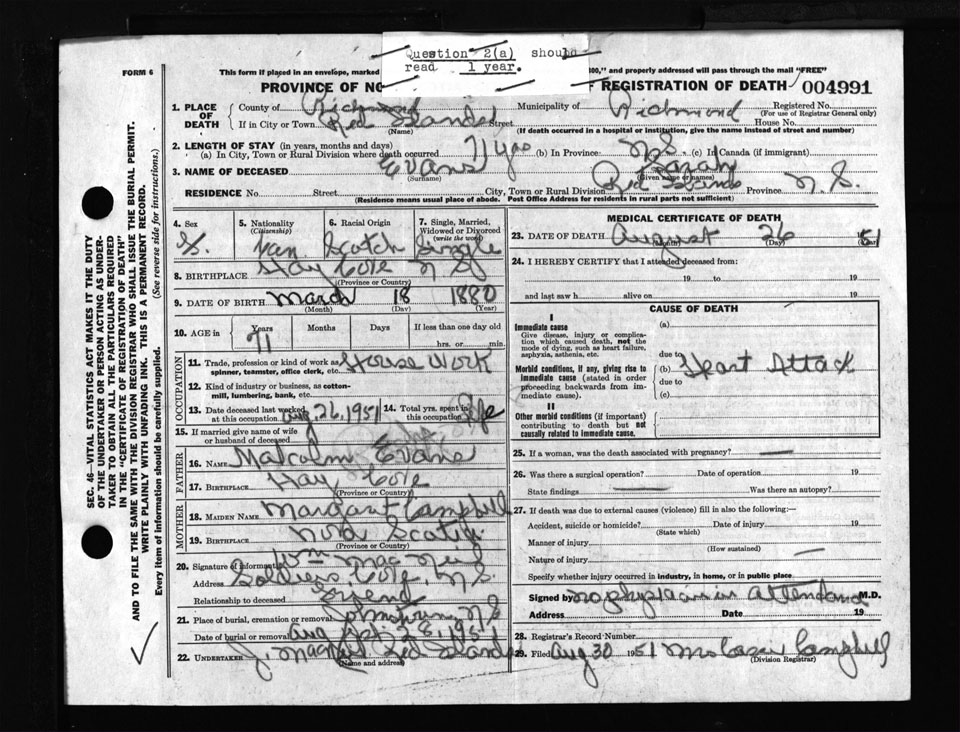 Question 2(a) should
read 1 year.
FORM 6
This form if placed in an envelope, marked
00," and properly addressed will pass through the mail "FREE"
PROVINCE OF NO
F REGISTRATION OF DEATH
004991
1. PLACE OF DEATH
County of Richmond
Municipality of Richmond
Registered No.
(For use of Registrar General only)
If in City or Town Red Islands Street House No.
(Name) (If death occurred in a hospital or institution, give the name instead of street and number)
2. LENGTH OF STAY (in years, months and days)
(a) In City, Town or Rural Division where death occurred 71 yrs (b) In Province N.S. (c) In Canada (if immigrant)
3. NAME OF DECEASED Evans Sarah
(Surname) (Given name or names)
RESIDENCE No. Street City, Town or Rural Division Red Islands Province N. S.
(Residence means usual place of abode. Post Office Address for residents in rural parts not sufficient)
4. Sex
5. Nationality (Citizenship)
6. Racial Origin
Scotch
7. Single, Married, Widowed or Divorced (write the word)
Single
8. BIRTHPLACE Hay Cove N S
(Province or Country)
9. DATE OF BIRTH March 18 1880
(Month) (Day) (Year)
10. AGE in Years Months Days If less than one day old
71 hrs. or min.
OCCUPATION
11. Trade, profession or kind of work as spinner, teamster, office clerk, etc. House Work
12. Kind of industry or business, as cotton-mill, lumbering, bank, etc.
13. Date deceased last worked at this occupation Aug. 26, 1951
14. Total yrs. spent in this occupation Life
15. If married give name of wife or husband of deceased
FATHER
16. NAME Malcolm Evans
17. BIRTHPLACE Hay Cove
(Province or Country)
MOTHER
18. MAIDEN NAME Margaret Campbell
19. BIRTHPLACE Nova Scotia
(Province or Country)
20. Signature of informant Wm Mac Neil
Address Soldiers Cove, N.S.
Relationship to deceased Friend
21. Place of burial, cremation or removal Johnstown N S
Date of burial or removal Aug 28, 1951
22. UNDERTAKER J. MacNeil Red Islands
(Name and address)
MEDICAL CERTIFICATE OF DEATH
23. DATE OF DEATH August 26 1951
(Month) (Day) (Year)
24. I HEREBY CERTIFY that I attended deceased from:
19 to 19
and last saw h alive on 19
CAUSE OF DEATH
I
Immediate cause
Give disease, injury or complication which caused death, not the mode of dying, such as heart failure, asphyxia, asthenia, etc.
(a)
due to
Morbid conditions, if any, giving rise to immediate cause (stated in order proceeding backwards from immediate cause).
(b) Heart Attack
due to
(c)
II
Other morbid conditions (if important) contributing to death but not causally related to immediate cause.
25. If a woman, was the death associated with pregnancy?
26. Was there a surgical operation? Date of operation 19
State findings Was there an autopsy?
27. If death was due to external causes (violence) fill in also the following:—
Accident, suicide or homicide? Date of injury 19
(State which)
Manner of injury
(How sustained)
Nature of injury
Specify whether injury occurred in industry, in home, or in public place
Signed by no physician in attendance M.D.
Address Date 19
28. Registrar's Record Number
29. Filed Aug 30 1951 Campbell
(Division Registrar)
SEC. 46—VITAL STATISTICS ACT MAKES IT THE DUTY
OF THE UNDERTAKER OR PERSON ACTING AS UNDER-
TAKER TO OBTAIN ALL THE PARTICULARS REQUIRED
IN THE "CERTIFICATE OF REGISTRATION OF DEATH"
AND TO FILE THE SAME WITH THE DIVISION REGISTRAR WHO SHALL ISSUE THE BURIAL PERMIT.
WRITE PLAINLY WITH UNFADING INK. THIS IS A PERMANENT RECORD.
Every item of information should be carefully supplied. (See reverse side for instructions.)